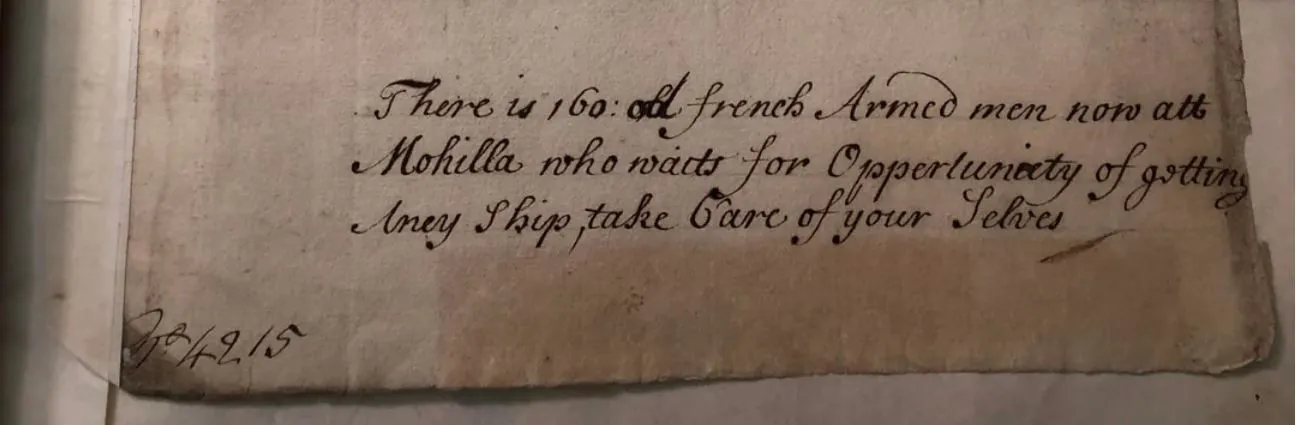 There is 160: odd french Armed men now att
Mohilla who waits for Oppertuniety of getting
Aney Ship, take Care of your Selves
No 4215